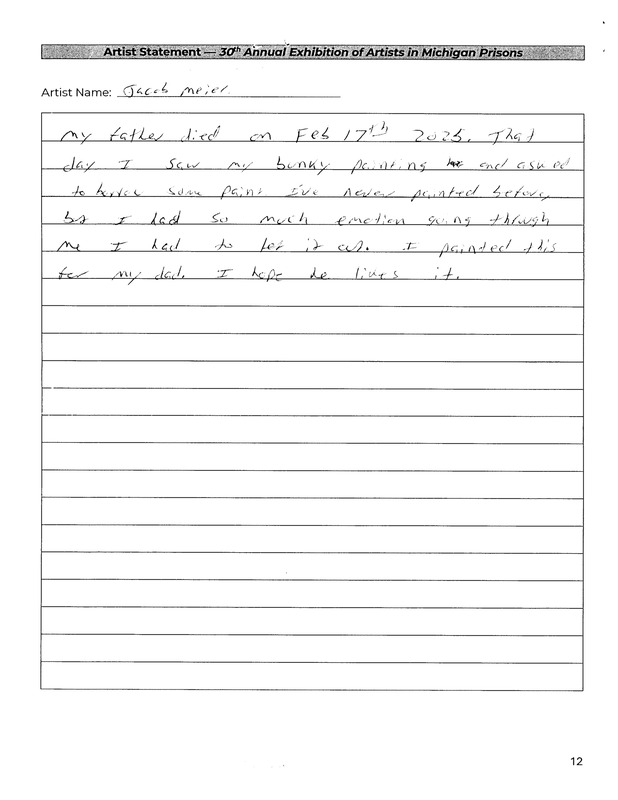 Artist Statement — 30th Annual Exhibition of Artists in Michigan Prisons
Artist Name: Jacob Meier
My father died on Feb 17th 2025. That
day I saw my bunky painting and asked
to borrow some paint I've never painted before,
but I had so much emotion going through
me I had to let it out. I painted this
for my dad. I hope he likes it.
12